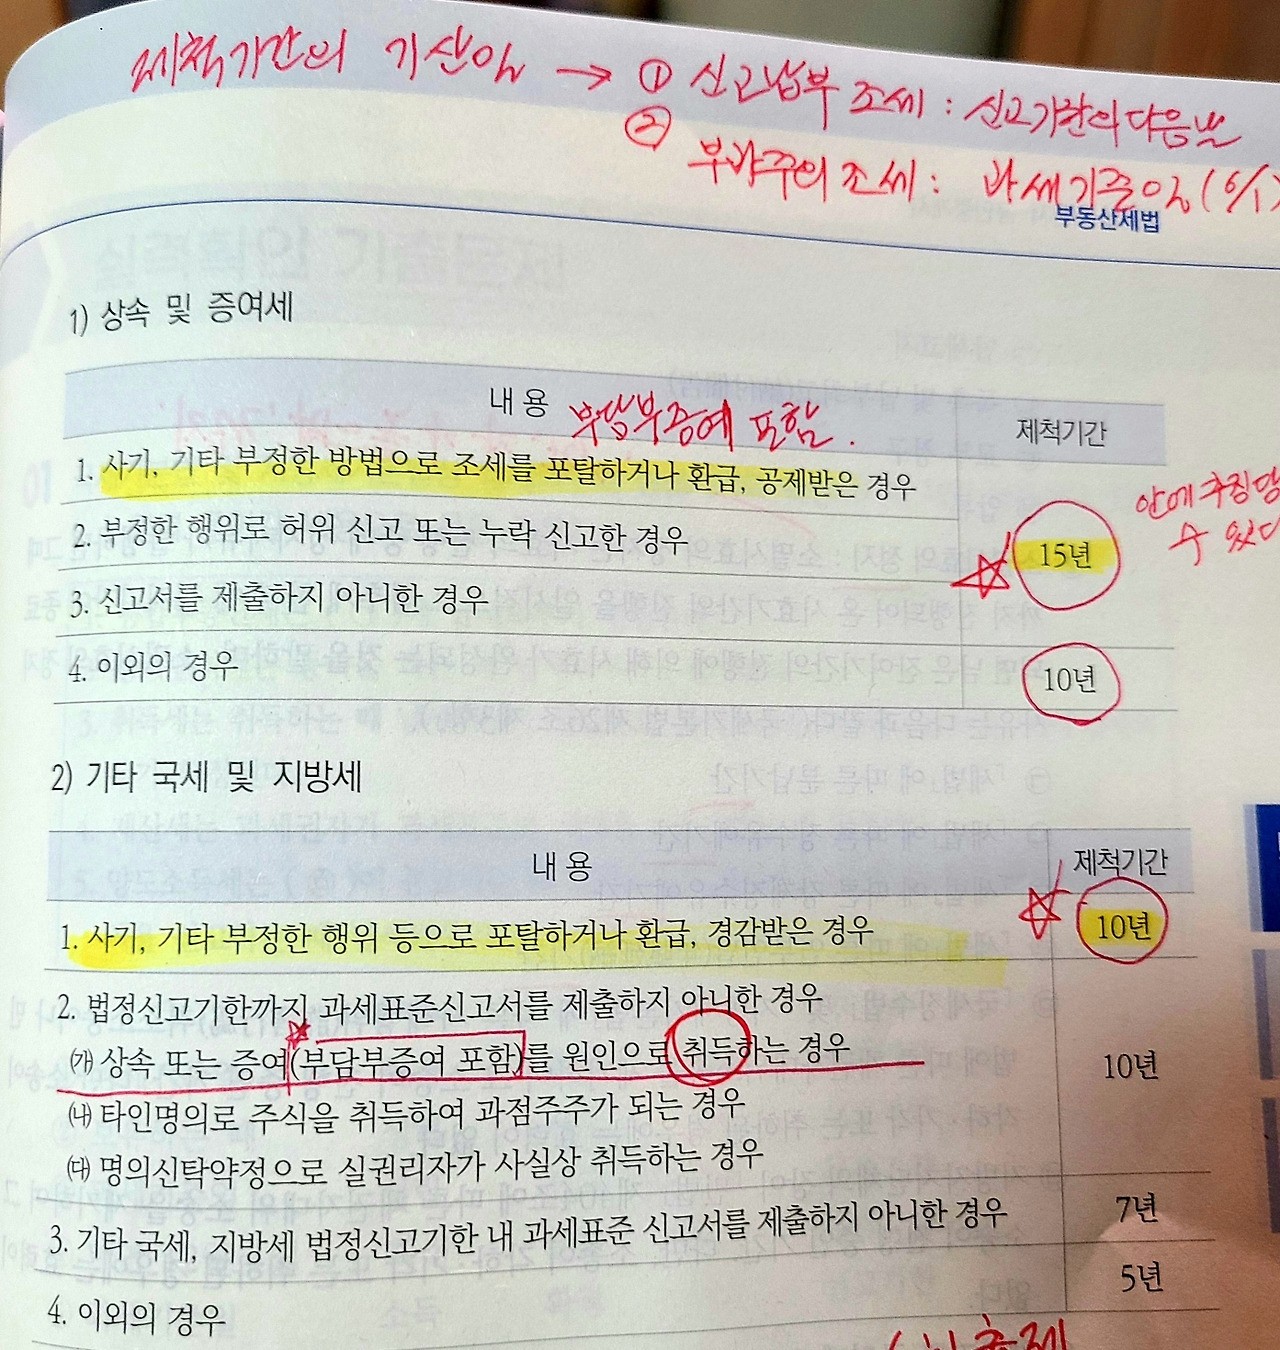 제척기간의 기산일 → ① 신고납부 조세 : 신고기한의 다음날
② 부과주의 조세 : 과세기준일 (6/1)
부동산세법
1) 상속 및 증여세
내 용 부담부증여 포함. 제척기간
1. 사기, 기타 부정한 방법으로 조세를 포탈하거나 환급, 공제받은 경우
2. 부정한 행위로 허위 신고 또는 누락 신고한 경우
15년
안에 추징당
수 있다
3. 신고서를 제출하지 아니한 경우
4. 이외의 경우 10년
2) 기타 국세 및 지방세
내 용 제척기간
1. 사기, 기타 부정한 행위 등으로 포탈하거나 환급, 경감받은 경우 10년
2. 법정신고기한까지 과세표준신고서를 제출하지 아니한 경우
㈎ 상속 또는 증여(부담부증여 포함)를 원인으로 취득하는 경우 10년
㈏ 타인명의로 주식을 취득하여 과점주주가 되는 경우
㈐ 명의신탁약정으로 실권리자가 사실상 취득하는 경우
3. 기타 국세, 지방세 법정신고기한 내 과세표준 신고서를 제출하지 아니한 경우 7년
4. 이외의 경우 5년